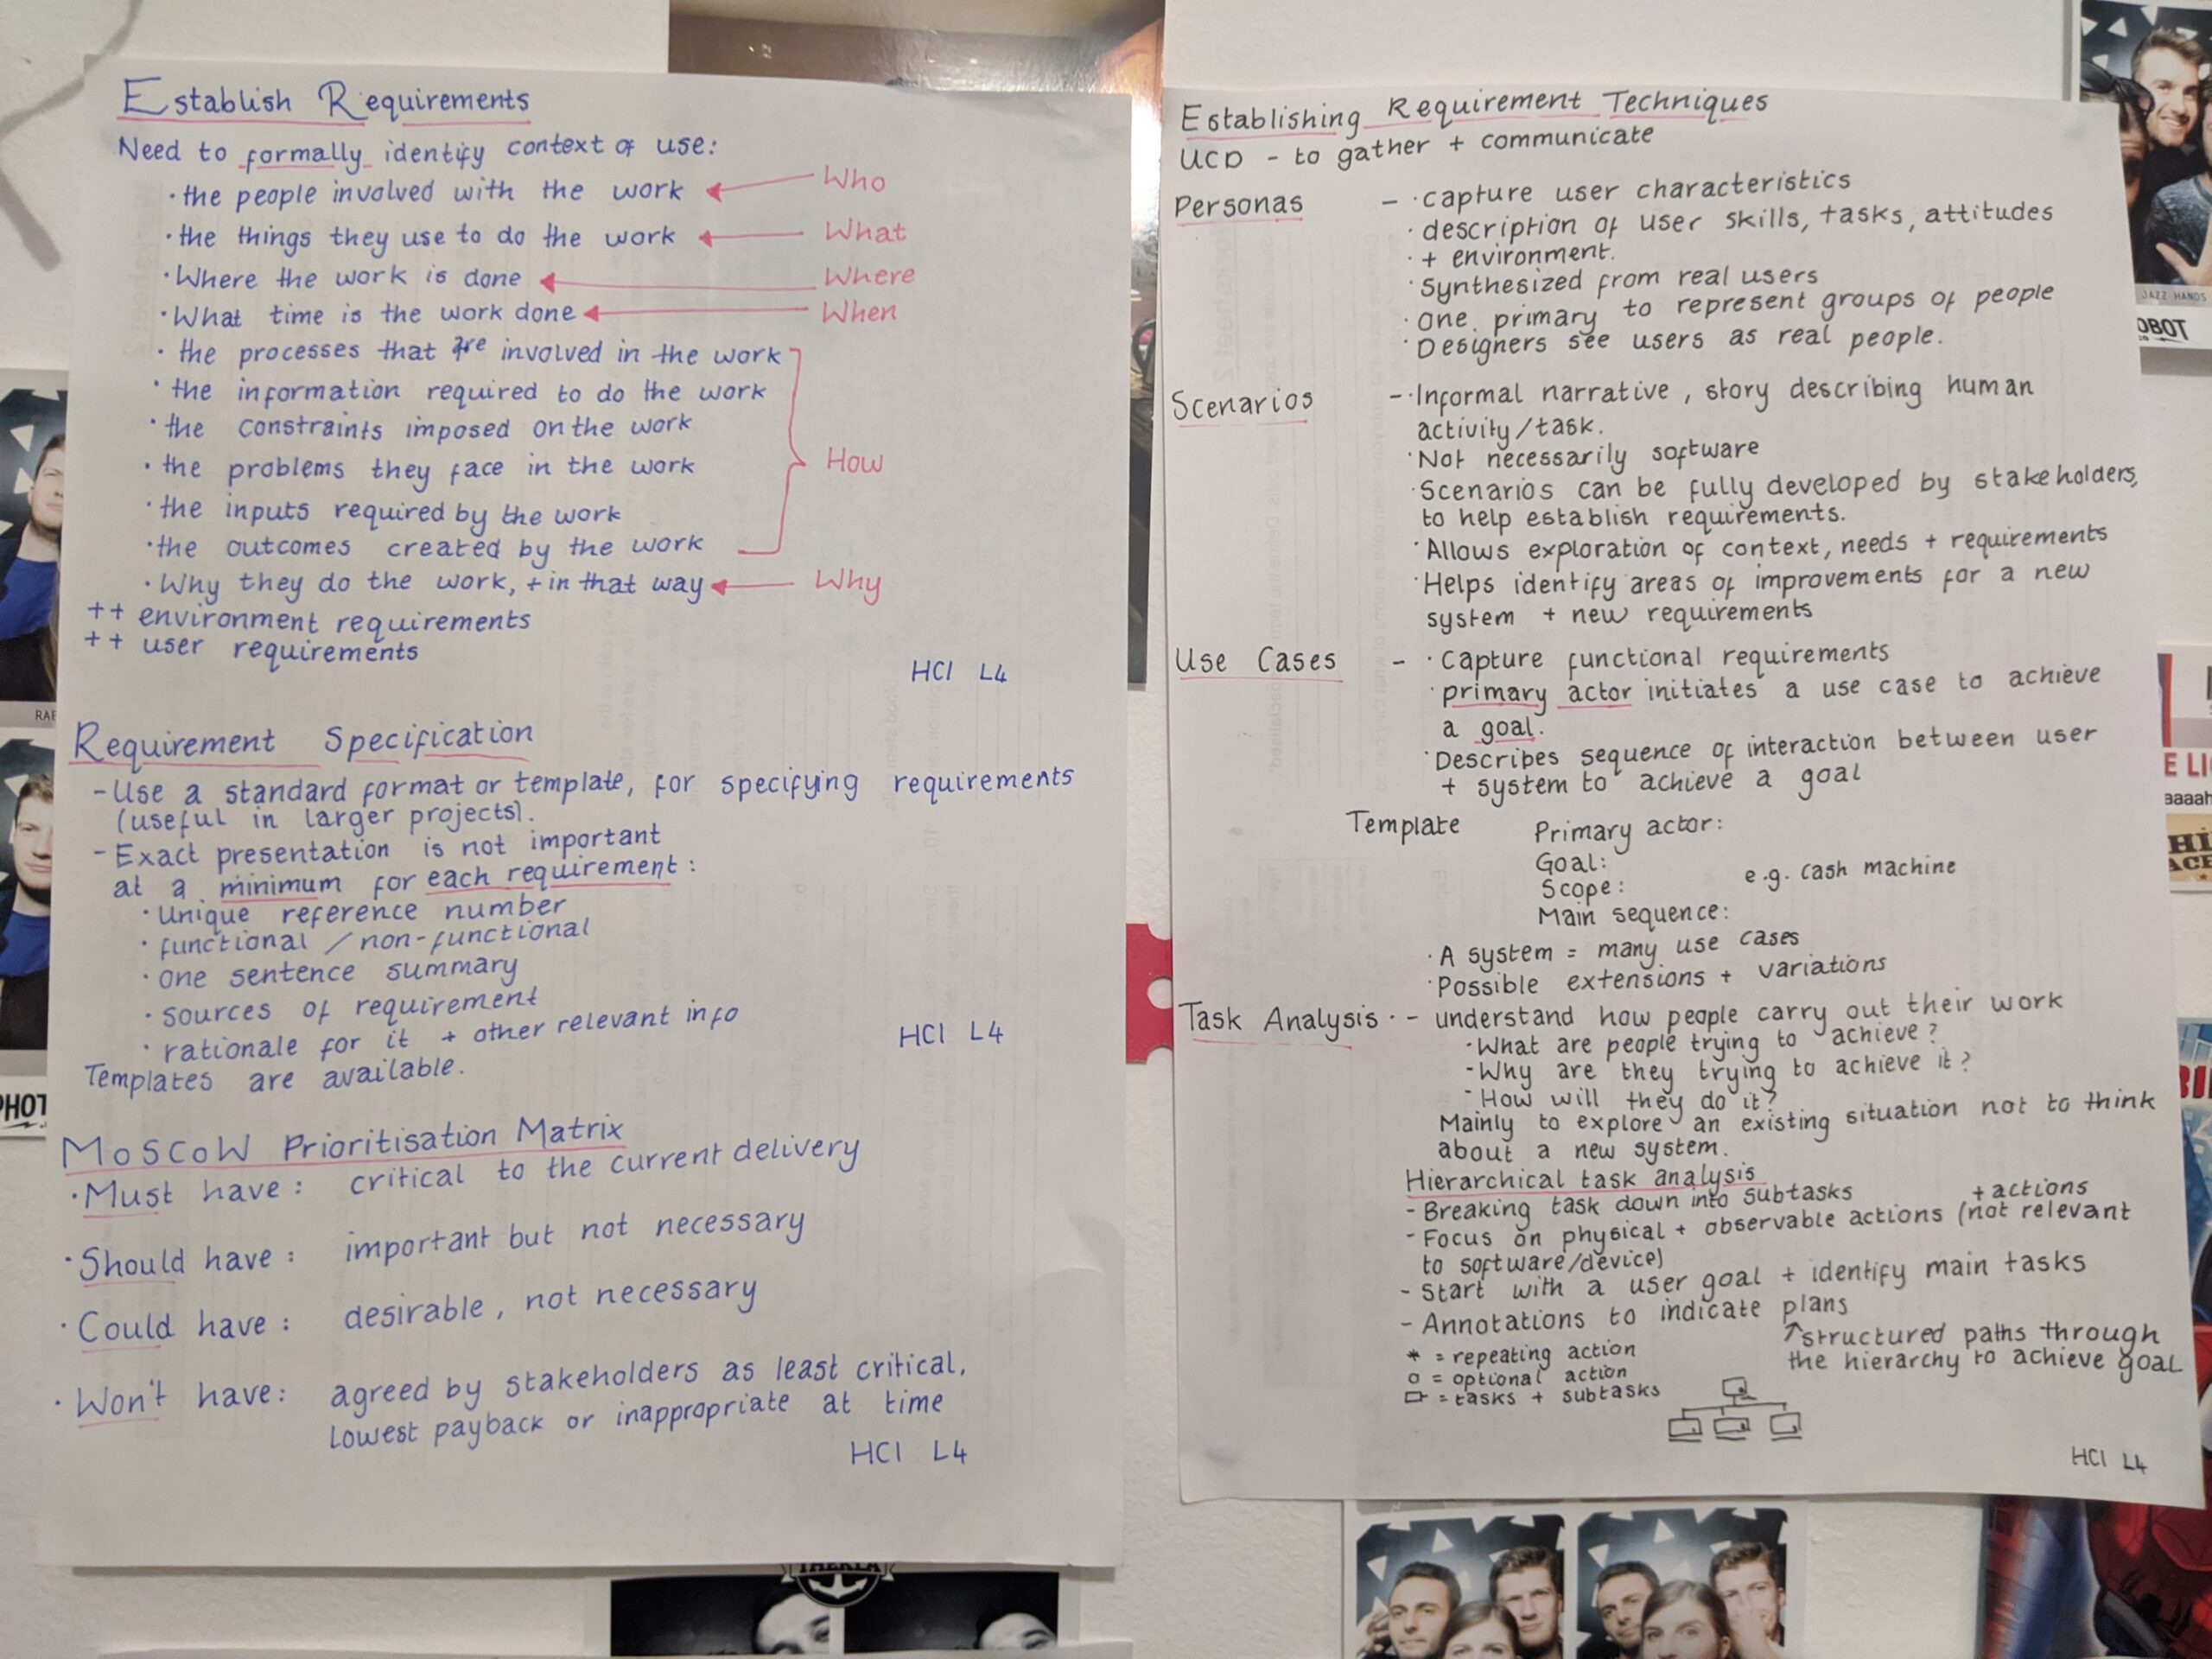 Establish Requirements
Need to formally identify context of use:
· the people involved with the work Who
· the things they use to do the work What
· Where the work is done Where
· What time is the work done When
· the processes that are involved in the work
· the information required to do the work
· the constraints imposed on the work
· the problems they face in the work How
· the inputs required by the work
· the outcomes created by the work
· Why they do the work, + in that way Why
++ environment requirements
++ user requirements
HCI L4
Requirement Specification
- Use a standard format or template, for specifying requirements
(useful in larger projects).
- Exact presentation is not important
at a minimum for each requirement:
· Unique reference number
· functional / non-functional
· one sentence summary
· sources of requirement
· rationale for it + other relevant info
HCI L4
Templates are available.
MoSCoW Prioritisation Matrix
· Must have: critical to the current delivery
· Should have: important but not necessary
· Could have: desirable, not necessary
· Won't have: agreed by stakeholders as least critical,
lowest payback or inappropriate at time
HCI L4
Establishing Requirement Techniques
UCD - to gather + communicate
Personas - · capture user characteristics
· description of user skills, tasks, attitudes
· + environment.
· Synthesized from real users
· One primary to represent groups of people
· Designers see users as real people.
Scenarios - · Informal narrative, story describing human
activity/task.
· Not necessarily software
· Scenarios can be fully developed by stakeholders,
to help establish requirements.
· Allows exploration of context, needs + requirements
· Helps identify areas of improvements for a new
system + new requirements
Use Cases - · Capture functional requirements
· primary actor initiates a use case to achieve
a goal.
· Describes sequence of interaction between user
+ system to achieve a goal
Template Primary actor:
Goal:
Scope: e.g. cash machine
Main sequence:
· A system = many use cases
· Possible extensions + variations
Task Analysis · - understand how people carry out their work
- What are people trying to achieve?
- Why are they trying to achieve it?
- How will they do it?
Mainly to explore an existing situation not to think
about a new system.
Hierarchical task analysis
- Breaking task down into subtasks + actions
- Focus on physical + observable actions (not relevant
to software/device)
- Start with a user goal + identify main tasks
- Annotations to indicate plans
↑ structured paths through
the hierarchy to achieve goal
* = repeating action
o = optional action
▭ = tasks + subtasks
HCI L4
JAZZ HANDS
OBOT
E LI
aaaah
HI
ACE
RAB
PHOT
THEKLA